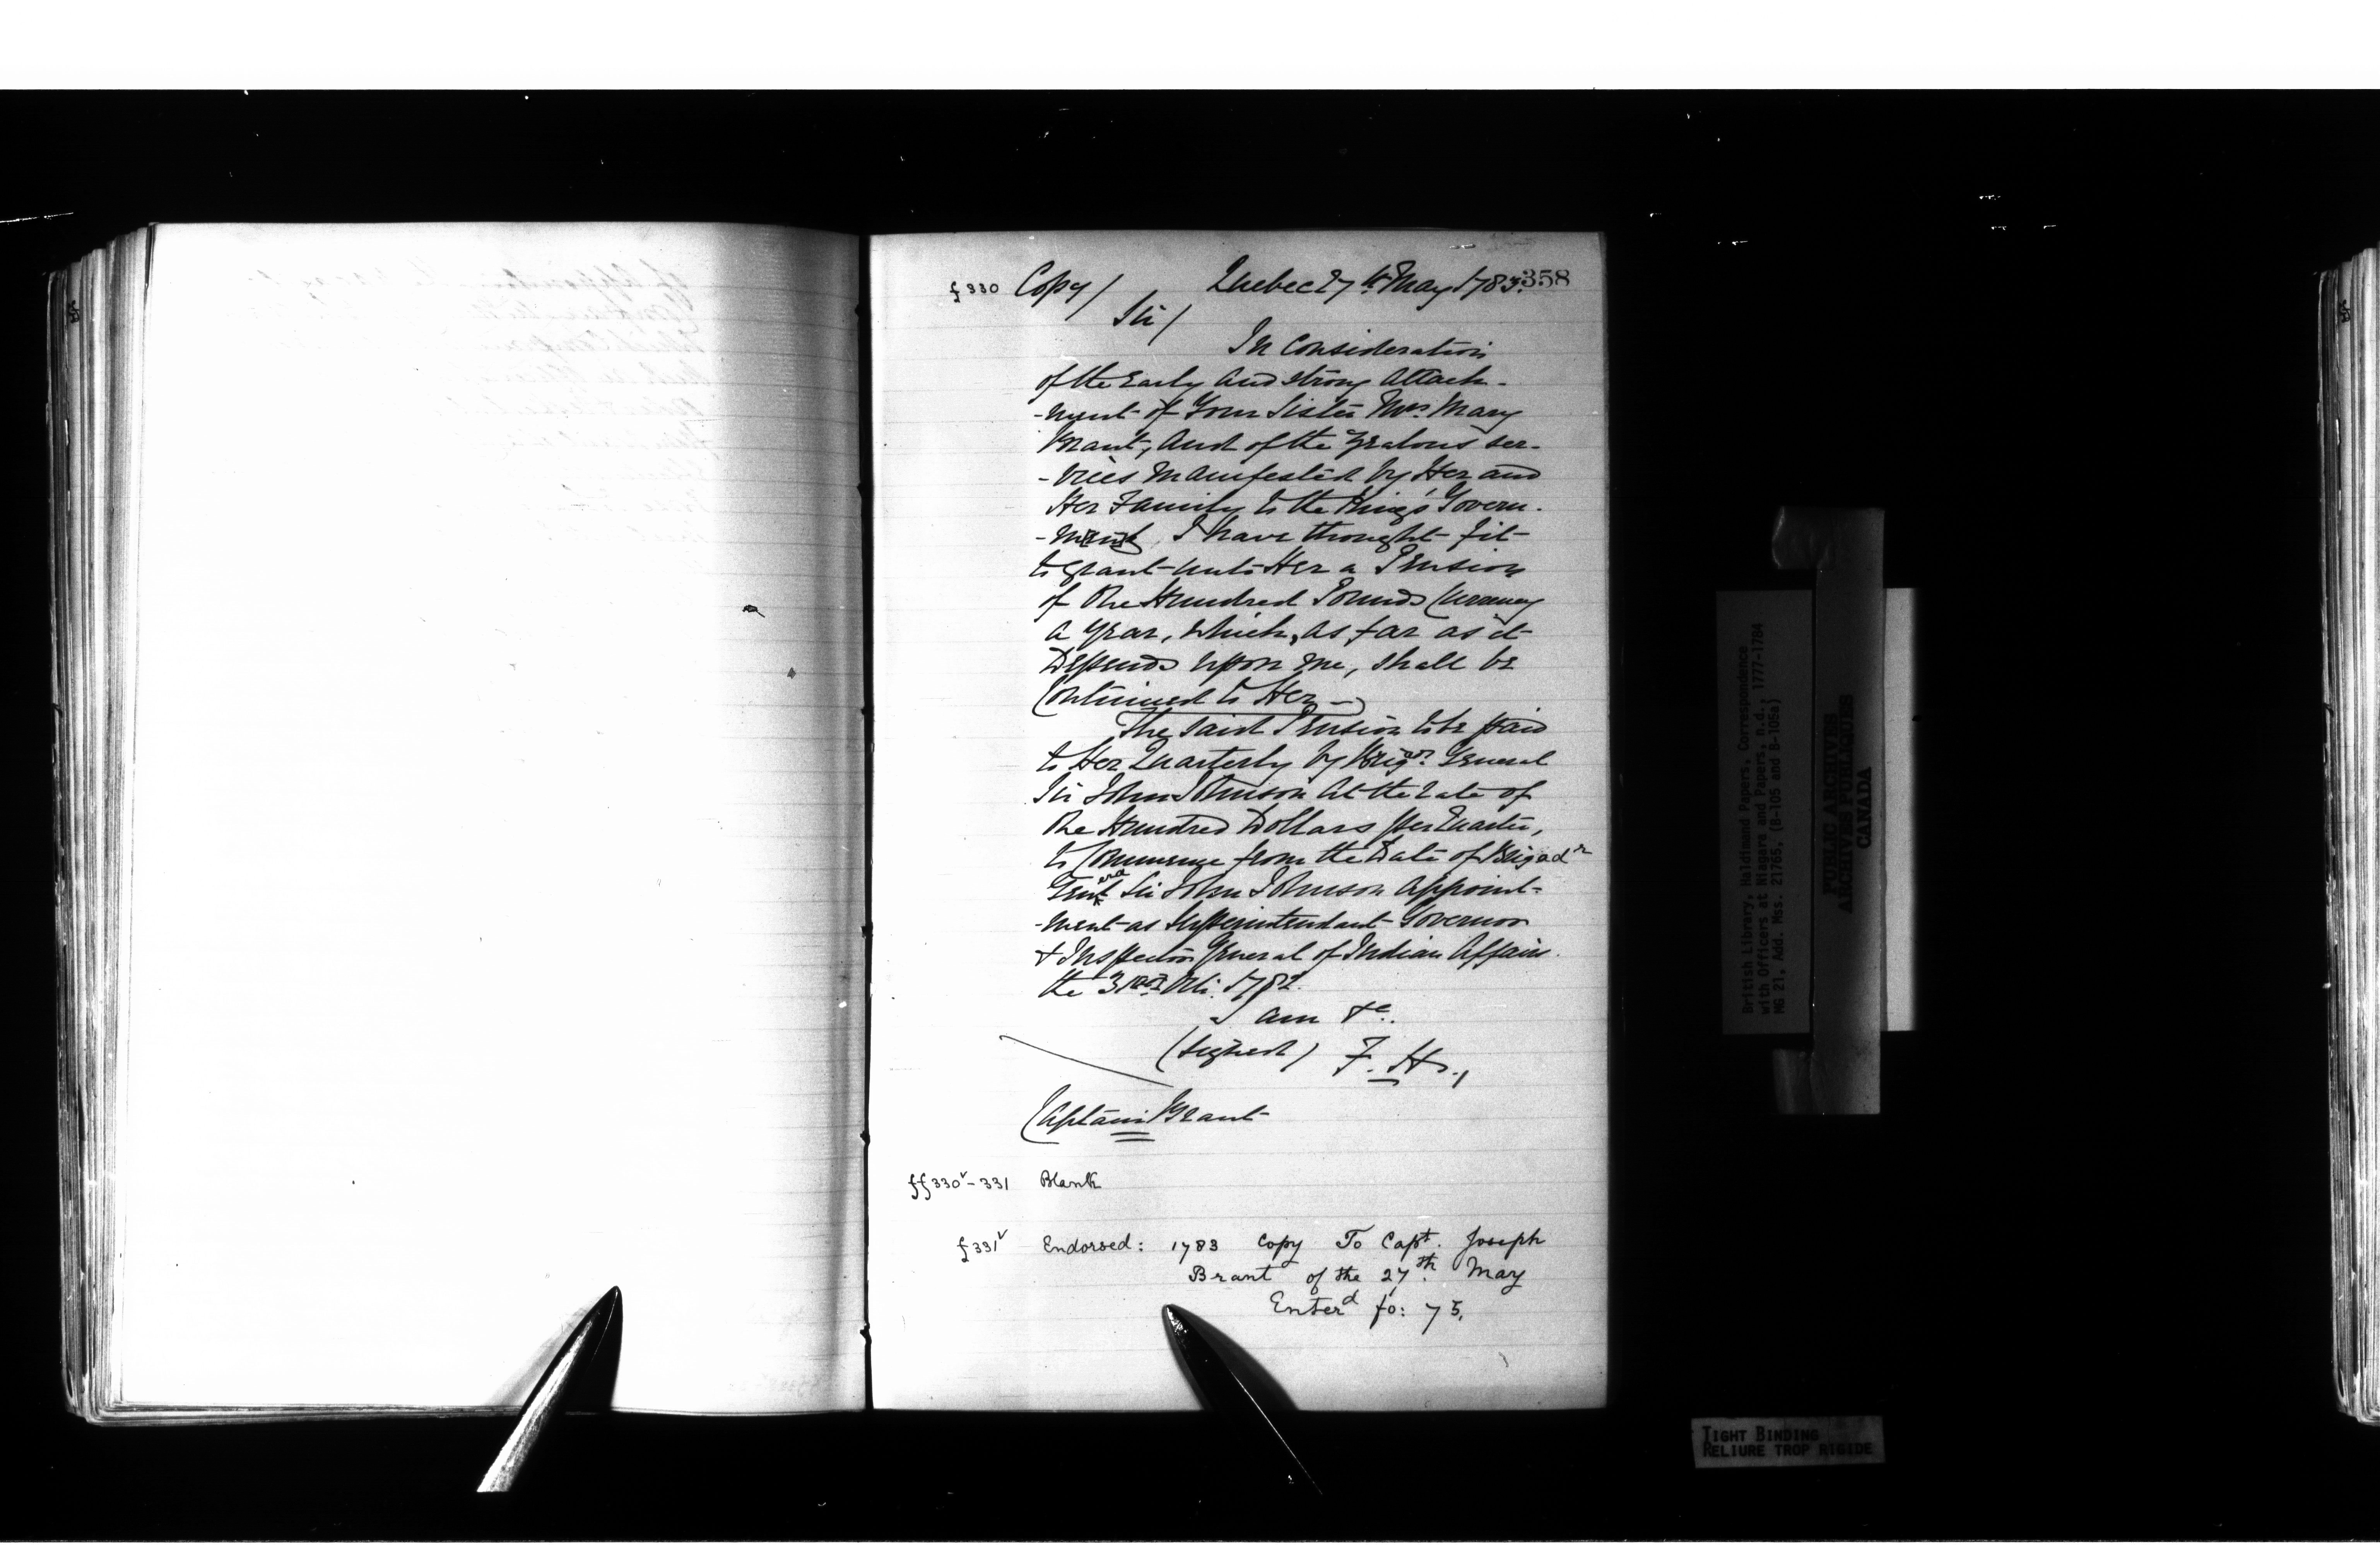 358
f 330 Copy/ Quebec 27th May 1783.
Sir/
In Consideration
of the Early and strong attach-
-ment of Your Sister Mrs. Mary
Brant, and of the Zealous ser-
-vices manifested by Her and
Her Family to the King's Govern-
-ment, I have thought fit
to grant unto Her a Pension
of One Hundred Pounds Currency
a Year, which, as far as it
Depends upon me, shall be
Continued to Her —
The said Pension to be paid
to Her Quarterly by Brigdr. General
Sir John Johnson at the rate of
One Hundred Dollars per Quarter,
to Commence from the Date of Brigadr
Genl Sir John Johnson Appoint-
-ment as Superintendant Governor
& Inspector General of Indian Affairs.
the
I am &c.
(signed) F. H.,
Captain Brant
ff 330v - 331 Blank
f 331v Endorsed: 1783 Copy To Capt. Joseph
Brant of the 27th. May
Enterd fo: 75.
British Library, Haldimand Papers, Correspondence
with Officers at Niagara and Papers, n.d., 1777-1784
MG 21, Add. Mss. 21765, (B-105 and B-105a)
PUBLIC ARCHIVES
ARCHIVES PUBLIQUES
CANADA
TIGHT BINDING
RELIURE TROP RIGIDE